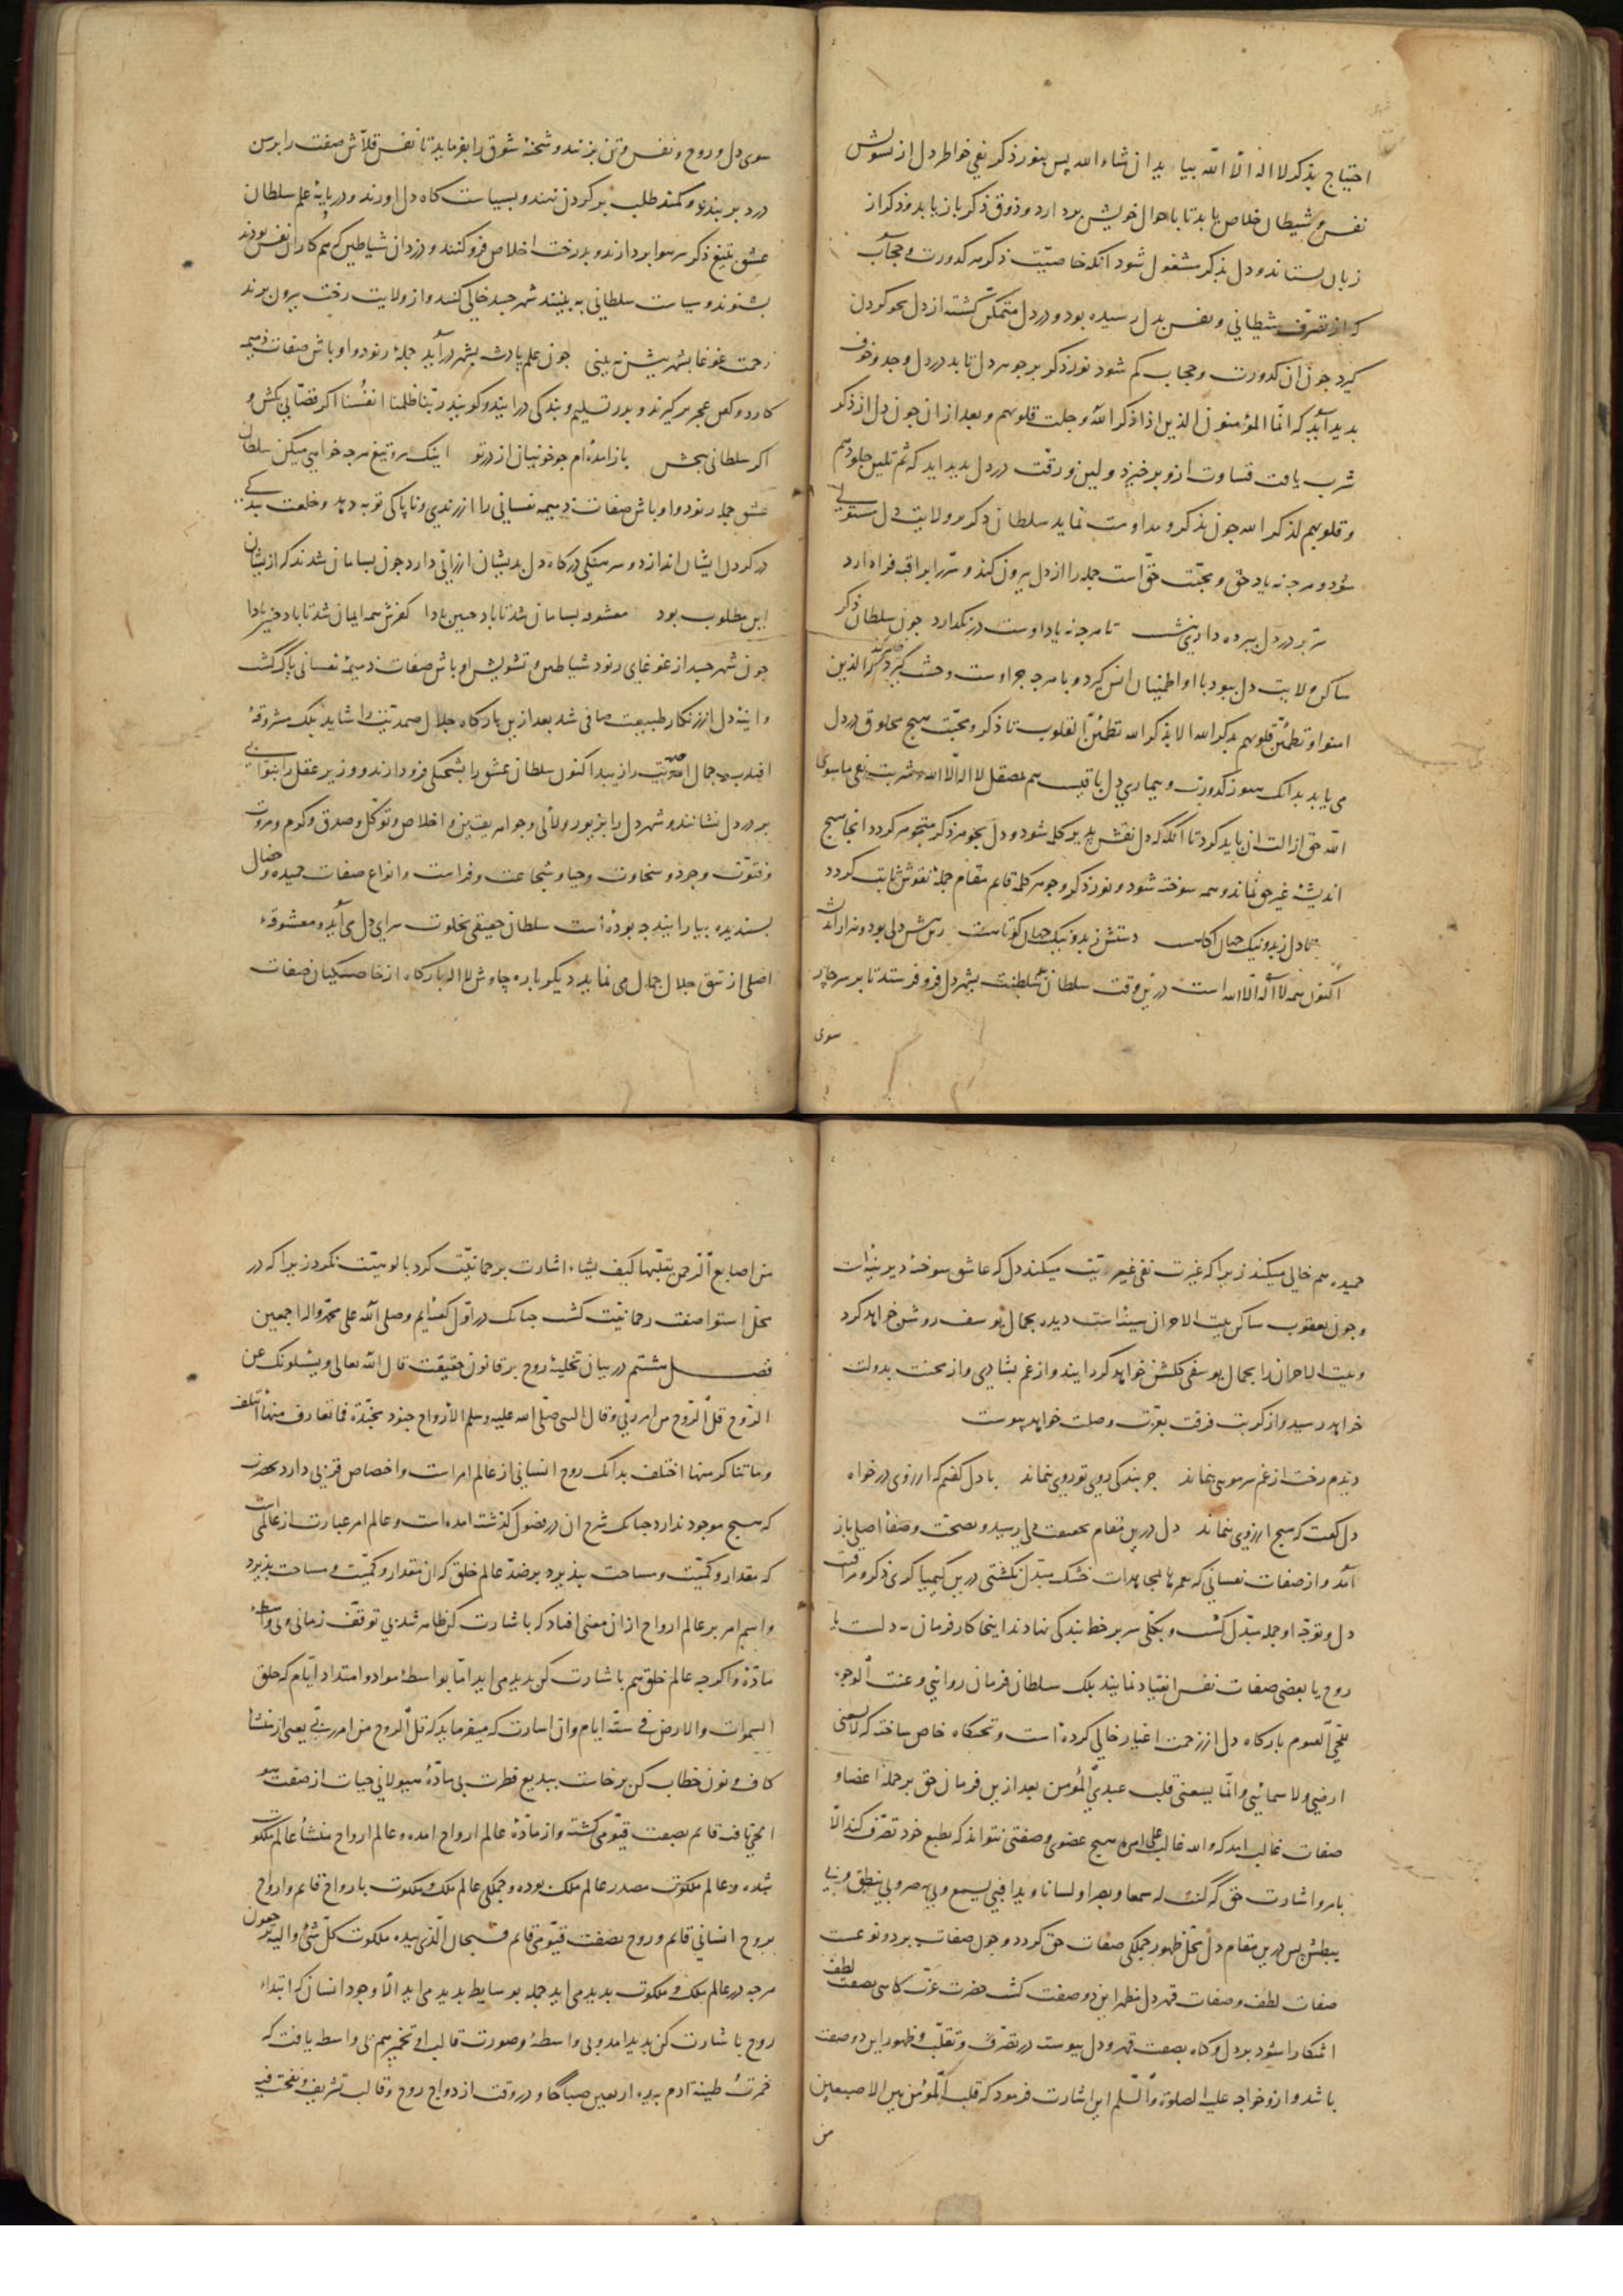 احتیاج بذکر لا اله الا الله بیاید ان شاء الله پس بنور ذکر نفی خواطر دل از تشویش
نفس و شیطان خلاص یابد تا باحوال خویش پردازد و ذوق ذکر باز یابد و ذکر از
زبان بستاند و دل بذکر مشغول شود آنکه خاصیّت ذکر هر کدورت و حجاب
که از تصرّف شیطانی و نفس بدل رسیده بود و در دل متمکّن گشته از دل محو کردن
گیرد جون ان کدورت و حجاب کم شود نور ذکر بر جوهر دل تابد در دل وجد و خوف
بدید آید که انّما المؤمنون الذین اذا ذکر الله وجلت قلوبهم و بعد از ان جون دل از ذکر
شرب یافت قساوت ازو برخیزد و لین و رقّت در دل بدید اید که ثم تلین جلودهم
و قلوبهم لذکر الله جون بذکر و مداومت نماید سلطان ذکر بر ولایت دل مستولی
شود و هر جه نه یاد حق و محبّت حقّ است جمله را از دل بیرون کند و سرّ را بمراقبه فراه دارد
سرّ بر در دل ببرده داری بنشست تا هر جه نه یاد اوست در نگذارد جون سلطان ذکر
ساکن ولایت دل بود با او اطمینان انس گیرد و با هر جه جز اوست وحشت گیرد که الذین
امنوا و تطمئنّ قلوبهم بذکر الله الا بذکر الله تطمئنّ القلوب تا ذکر و محبّت هیج مخلوق در دل
می یابد بدانک هنوز کدورت و بیماری دل باقیست هم بمصقل لا اله الّا الله و شربت نفی ما سوی
الله حق ازالت ان باید کرد تا انگه که دل نقش پذیر کلمه شود و دل بجوهر ذکر متجوهر کردد انجا هیج
اندیشه غیر حق نماند و همه سوخته شود و نور ذکر و جوهر کلمه قایم مقام جمله نقوش ثابت کردد
تا دل ز بد و نیک جهان اکاهست دستش ز بد و نیک جهان کوتاهست زین بیش دلی بود و هزار اندیشه
اکنون همه لا اله الّا الله است درین وقت سلطان عشق سلطنت بشهر دل فرو فرستد تا بر سر جار
سوی
سوی دل و روح و نفس و تن بزنند و شحنهٔ شوق را بفرماید تا نفس قلاّش صفت را برسن
درد بر بندد و کمند طلب بر گردن نهند و بسیاستگاه دل اورند و در پایهٔ علم سلطان
عشق بتیغ ذکر سر هوا بردارند و بدرخت اخلاص فرو کنند و دزدان شیاطین که هم کاران نفس بودند
بشنوند و سیاست سلطانی به بینند شهر جسد خالی کنند و از ولایت رخت بیرون برند
زحمت غوغا بشهر بیش نه بینی جون علم پادشه بشهر درآید جملهٔ رنود و اوباش صفات ذمیمه
کارد و کفن عجز برگیرند و بدر تسلیم و بندگی درایند و گویند ربّنا ظلمنا انفسنا اکر قصّابی بکش و
اکر سلطانی ببخش باز آمده‌ام جو خونیان از در تو اینک سر و تیغ هر جه خواهی میکن سلطان
عشق جمله رنود و اوباش صفات ذمیمه نفسانی را از رندی و ناپاکی توبه دهد و خلعت بندگی
در گردن ایشان اندازد و سرهنگی درگاه دل بدیشان ارزانی دارد جون بسامان شدند که ازیشان
این مطلوب بود معشوقه بسامان شد تا باد جنین بادا کفرش همه ایمان شد تا باد جنین بادا
جون شهر جسد از غوغای رنود شیاطین و تشویش اوباش صفات ذمیمهٔ نفسانی پاک گشت
و اینهٔ دل از زنگار طبیعت صافی شد بعد ازین بارگاه جلال صمدیّت را شاید بلک مشروقهٔ
افتاب جمال احدیّت را زیبد اکنون سلطان عشق را بشحنگی فرو دارند و وزیر عقل را ببوّابی
بر در دل نشانند و شهر دل را بزیور و لآلی و جواهر یقین و اخلاص و توکّل و صدق و کرم و مروت
و فتوّت و جود و سخاوت و حیا و شجاعت و فراست و انواع صفات حمیده و خصال
بسندیده بیارایند جه بوده است سلطان حقیقی بخلوت سرای دل می‌آید و معشوقهٔ
اصلی از تتق جلال جمال می نماید دیگر باره جاوش لا اله بارگاه از خاصگیان صفات
حمیده هم خالی میکند زیرا که غیرت نفی غیریّت میکند دل که عاشق سوخته دیرینه است
و جون یعقوب ساکن بیت الاحزان سینه است دیده بجمال یوسف روشن خواهد کرد
و بیت الاحزان را بجمال یوسفی گلشن خواهد گردانید و از غم بشادی و از محنت بدولت
خواهد رسید و از کربت فرقت بعزّت وصلت خواهد پیوست
دیدم رخت از غم سر مویی بنماند جز بندگی روی تو رویی بنماند با دل گفتم که ارزوی در خواه
دل گفت که هیج ارزوی بنماند دل درین مقام بحقیقت دلی رسید و بصحّت و صفاء اصلی باز
آمد و از صفات نفسانی که بعمرها بمجاهدات خشک مبدّل نگشتی درین کیمیا کری ذکر و مراقبت
دل و توجّه او جمله مبدّل گشت و بکلّی سر بر خط بندگی نهادند اینجا کار فرمان نه دلست یا
روح یا بعضی صفات نفس انقیاد نمایند بلک سلطان فرمان روانی و عنت الوجوه
للحیّ القیوم بارگاه دل از زحمت اغیار خالی کرده است و تختگاه خاص ساخته که لا یسعنی
ارضی و لا سمائی و انّما یسعنی قلب عبدی المؤمن بعد ازین فرمان حق بر جمله اعضا و
صفات غالب اید که والله غالب علی امره هیج عضوی و صفتی نتواند که بطبع خود تصرّف کند الّا
بامر و اشارت حق که کنت له سمعا و بصرا و لسانا و یدا فبی یسمع و بی یبصر و بی ینطق و بی
یبطش پس درین مقام دل محلّ ظهور جملگی صفات حق گردد و جون صفات بر دو نوعست
صفات لطف و صفات قهر دل مظهر این دو صفت گشت حضرت عزّت کاهی بصفت لطف
اشکارا شود بر دل و کاه بصفت قهر و دل پیوسته در تصرّف و تقلّب و ظهور این دو صفت
باشد و ازو خواجه علیه الصلوة و السّلم این اشارت فرمود که قلب المؤمن بین الاصبعین
من
من اصابع الرّحمن یقلّبها کیف یشاء اشارت برحمانیّت کرد بالوهیّت نکرد زیرا که در
محلّ استوا صفت رحمانیّت گشت جنانک در اوّل گفته‌ایم و صلی الله علی محمّد و اله اجمعین
فصل هشتم در بیان تخلیهٔ روح بر قانون حقیقت قال الله تعالی و یسئلونک عن
الرّوح قل الرّوح من امر ربّی و قال النبی صلّی الله علیه و سلم الارواح جنود مجنّدة فما تعارف منها ائتلف
و ما تناکر منها اختلف بدانک روح انسانی از عالم امر است و اختصاص قربی دارد بحضرت
که هیج موجود ندارد جنانک شرح ان در فصول گذشته امده است و عالم امر عبارت از عالمی است
که مقدار و کمیّت و مساحت نپذیرد بر ضدّ عالم خلق که ان مقدار و کمیّت و مساحت پذیرد
و اسم امر بر عالم ارواح از ان معنی افتاد که باشارت کن ظاهر شد بی توقّف زمانی و بی واسطهٔ
مادّه و اگرجه عالم خلق هم باشارت کن بدید می اید امّا بواسطهٔ مواد و امتداد ایّام که خلق
السموات و الارض فی ستّة ایام و ان اشارت که میفرماید که قل الروح من امر ربّی یعنی از منشأ
کاف و نون خطاب کن برخاست ببدیع فطرت بی مادّهٔ هیولانی حیات از صفت هو
الحیّ یافته قایم بصفت قیّومی گشته و از مادّهٔ عالم ارواح امده و عالم ارواح منشأ عالم ملکوت
شده و عالم ملکوت مصدر عالم ملک بوده و جملگی عالم ملک و ملکوت بارواح قایم و ارواح
بروح انسانی قایم و روح بصفت قیّومی قایم فسبحان الّذی بیده ملکوت کلّ شئ و الیه ترجعون
هر جه در عالم ملک و ملکوت بدید می اید جمله بوسایط بدید می اید الّا وجود انسان که ابتداء
روح باشارت کن بدید امد و بی واسطهٔ و صورت قالب او تخمیر هم بی واسطه یافت که
خمّرت طینة ادم بیدی اربعین صباحا و در وقت ازدواج روح و قالب تشریف و نفخت فیه